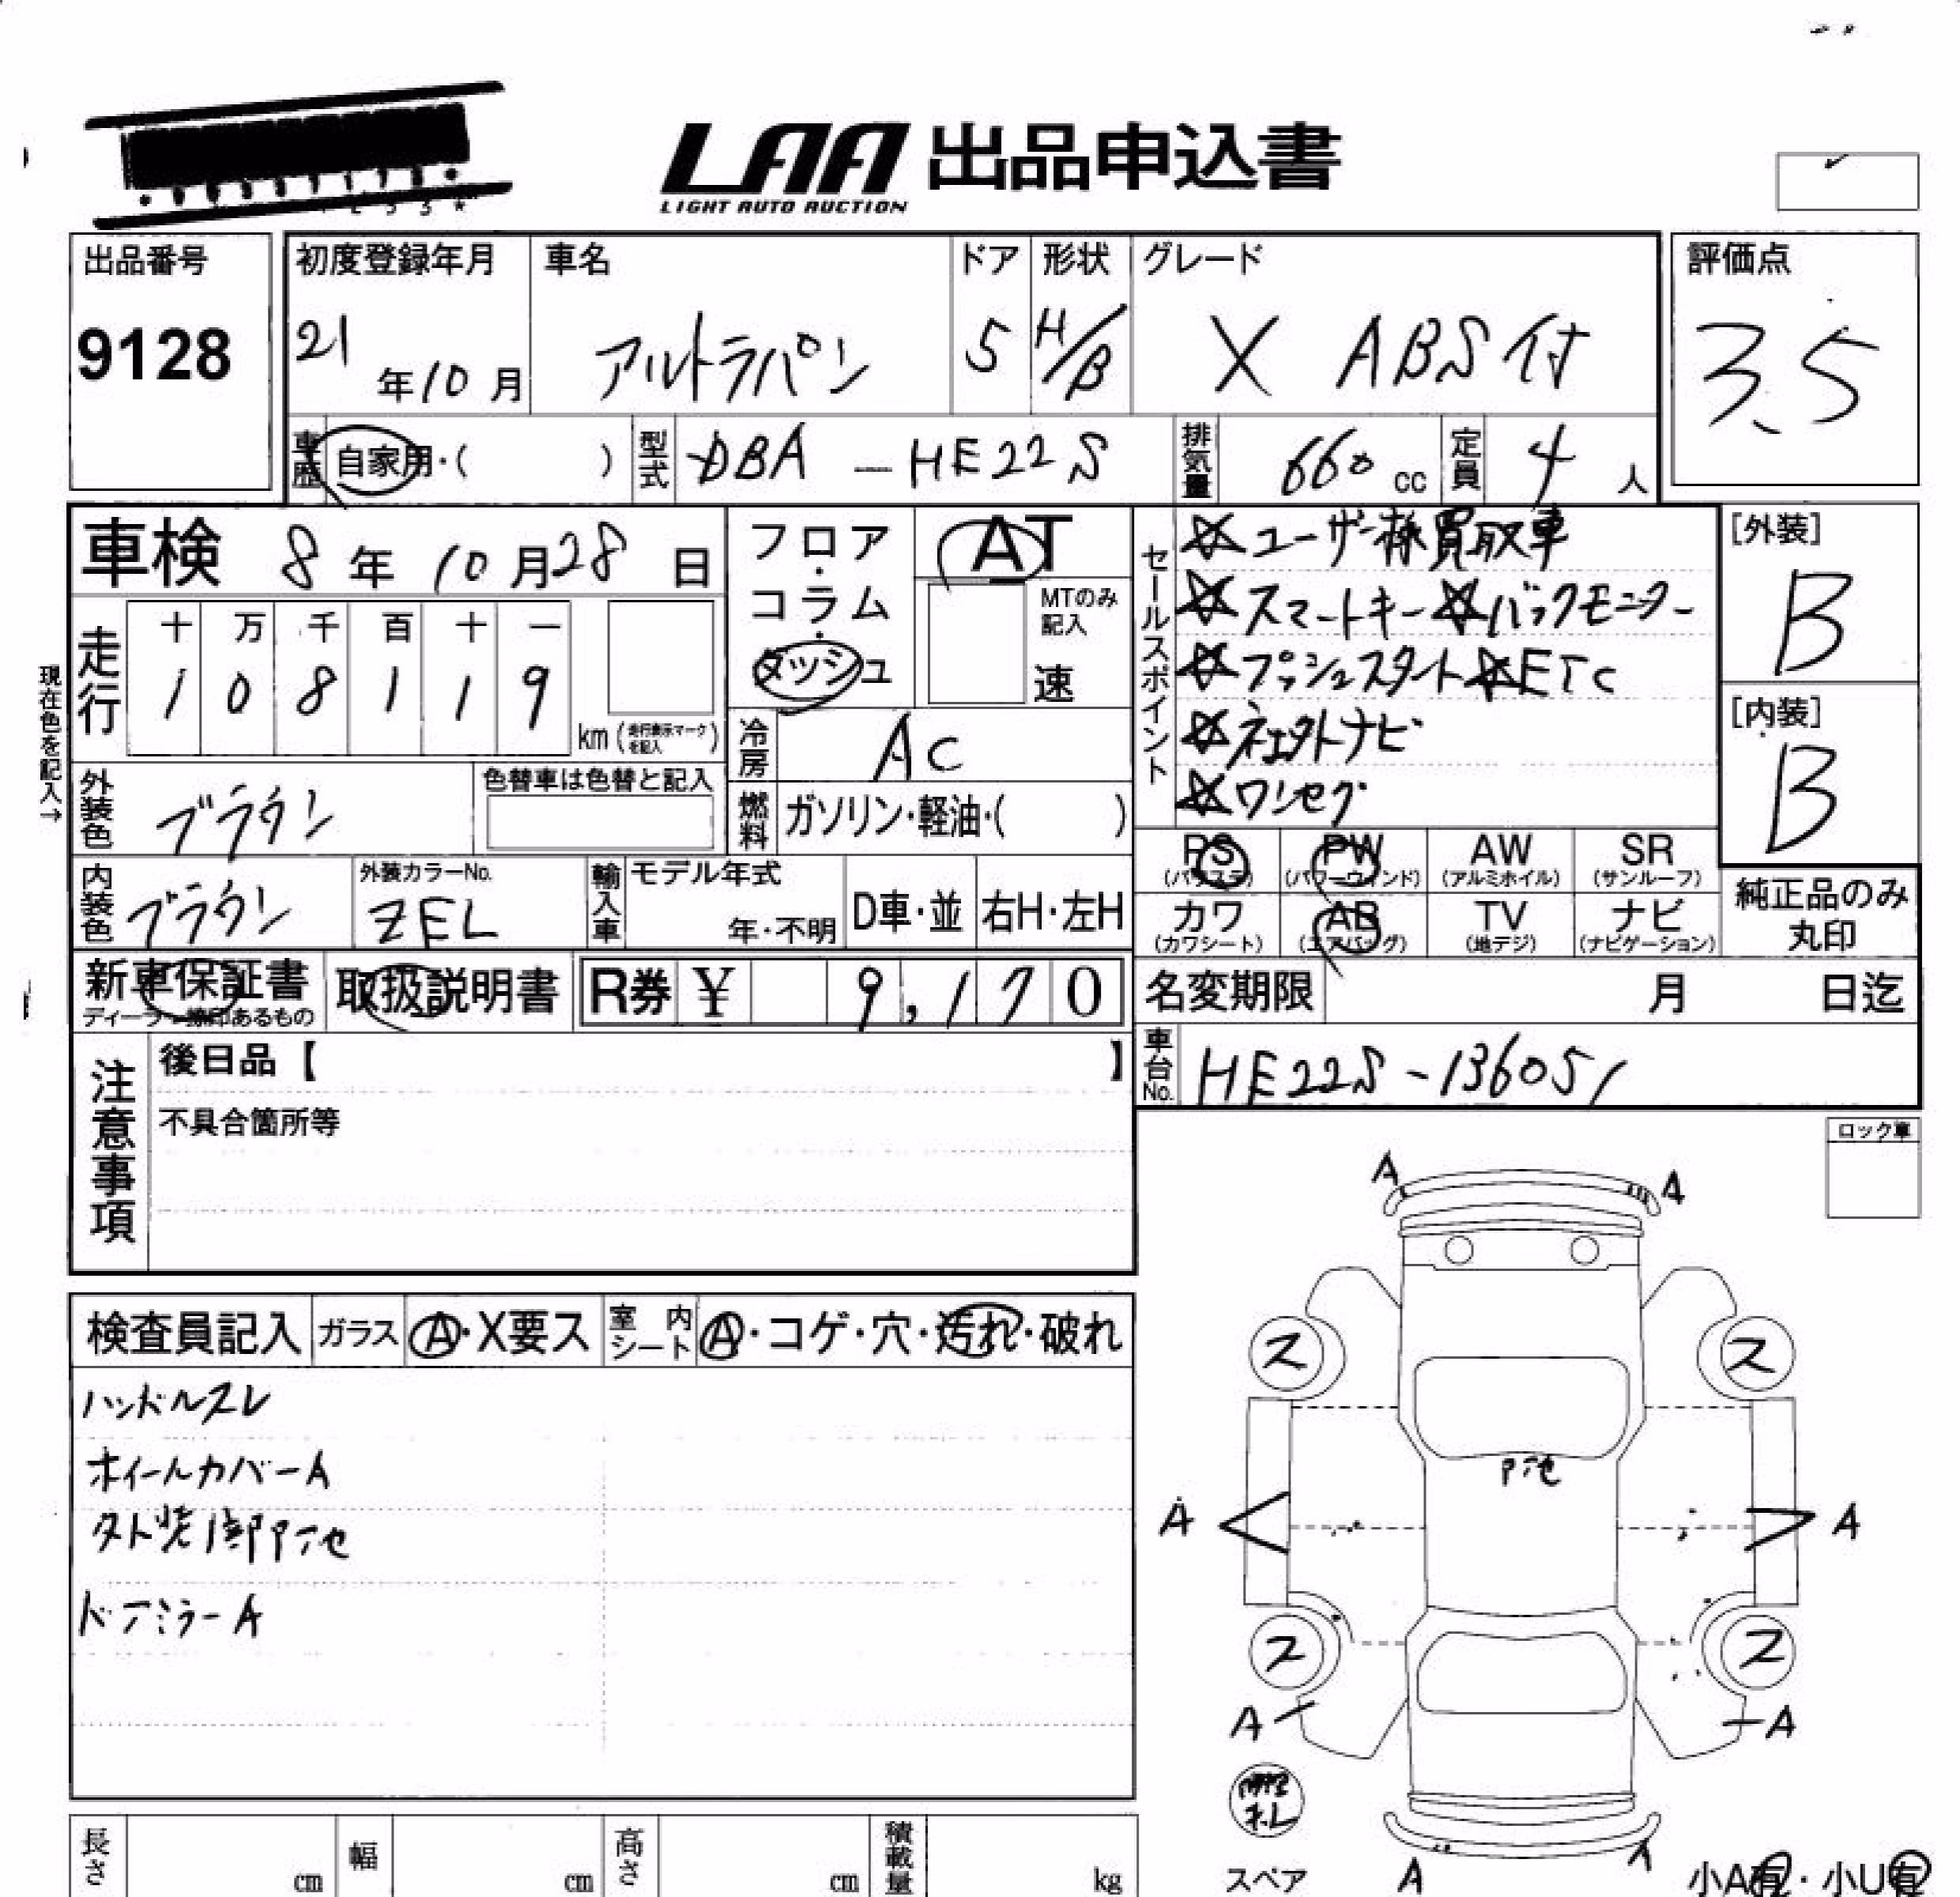 LAA 出品申込書
LIGHT AUTO AUCTION
出品番号
9128
初度登録年月
21年10月
車名
アルトラパン
ドア
5
形状
H/B
グレード
X ABS付
評価点
3.5
車歴 自家用・( )
型式 DBA-HE22S
排気量 660cc
定員 4人
車検 8年10月28日
フロア・コラム・ダッシュ
AT
MTのみ記入
速
セールスポイント
☆ユーザー様買取車
☆スマートキー☆バックモニター
☆プッシュスタート☆ETC
ナビ
☆ワンセグ
[外装]
B
[内装]
B
現在色を記入→
走行
十 万 千 百 十 一
1 0 8 1 1 9
km(走行表示マークを記入)
冷房 AC
燃料 ガソリン・軽油・( )
外装色 ブラウン
色替車は色替と記入
内装色 ブラウン
外装カラーNo.
ZEL
輸入車
モデル年式
年・不明
D車・並
右H・左H
PS PW AW SR
(パワステ) (パワーウィンド) (アルミホイル) (サンルーフ)
カワ AB TV ナビ
(カワシート) (エアバッグ) (地デジ) (ナビゲーション)
純正品のみ丸印
新車保証書
取扱説明書
R券 ¥ 9,170
名変期限 月 日迄
車台No. HE22S-136051
注意事項
後日品【 】
不具合箇所等
ロック車
検査員記入
ガラス A・X要ス
室内シート A・コゲ・穴・汚れ・破れ
ハンドルスレ
ホイールカバーA
外装
ドアミラーA
A A
ス ス
A A
ス ス
A A
スペア
A
小A有・小U有
長さ cm
幅 cm
高さ cm
積載量 kg